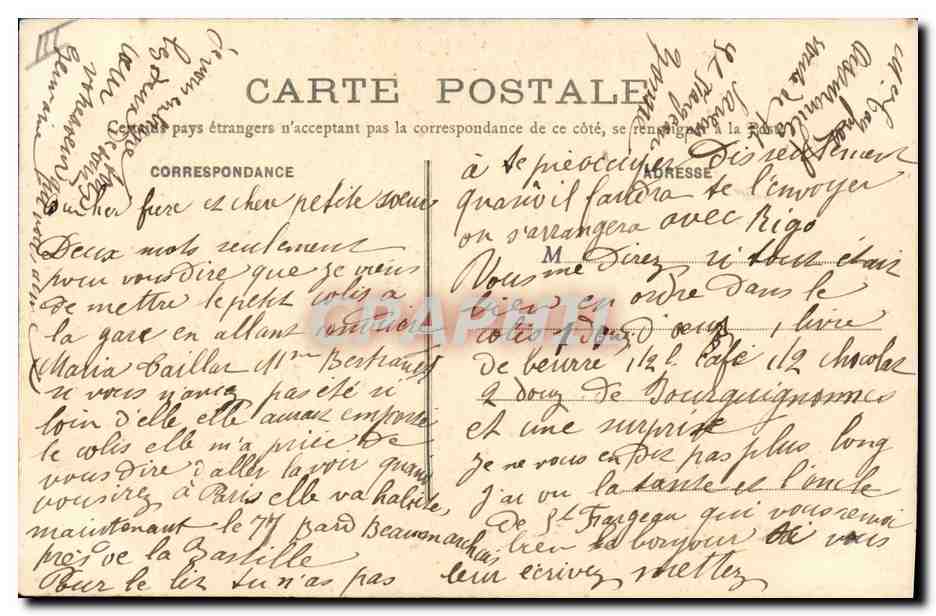 III
CARTE POSTALE
Certains pays étrangers n'acceptant pas la correspondance de ce côté, se renseigner à la Poste
CORRESPONDANCE
cher frere et chere petite soeur
Deux mots seulement
pour vous dire que je viens
de mettre le petit colis a
la gare en allant conduire
Maria Taillar Mme Bertrand
si vous n'aviez pas été si
loin d'elle elle aurait emporté
le colis elle m'a priée de
vous dire d'aller la voir quand
vous irez à Paris elle va habiter
maintenant le 77 Bard Beaumarchais
près de la Bastille
Pour le liz tu n'as pas
ADRESSE
à te préoccuper discretement
quand il faudra te l'envoyer
on s'arrangera avec Rigo
M
Vous me direz si tout était
bien en ordre dans le
colis 1 douz d'oeufs, 1 livre
de beurre 1/2 l. Café 1/2 chocolat
2 douz de Bourguignonnes
et une surprise
Je ne vous en dis pas plus long
j'ai vu la tante et l'oncle
de St Fargeau qui vous envoi
bien le bonjour si vous
leur écrivez mettez
St Fargeau
Yonne
Je vous embrasse
les deux
votre soeur
Germaine
CPAPHIL